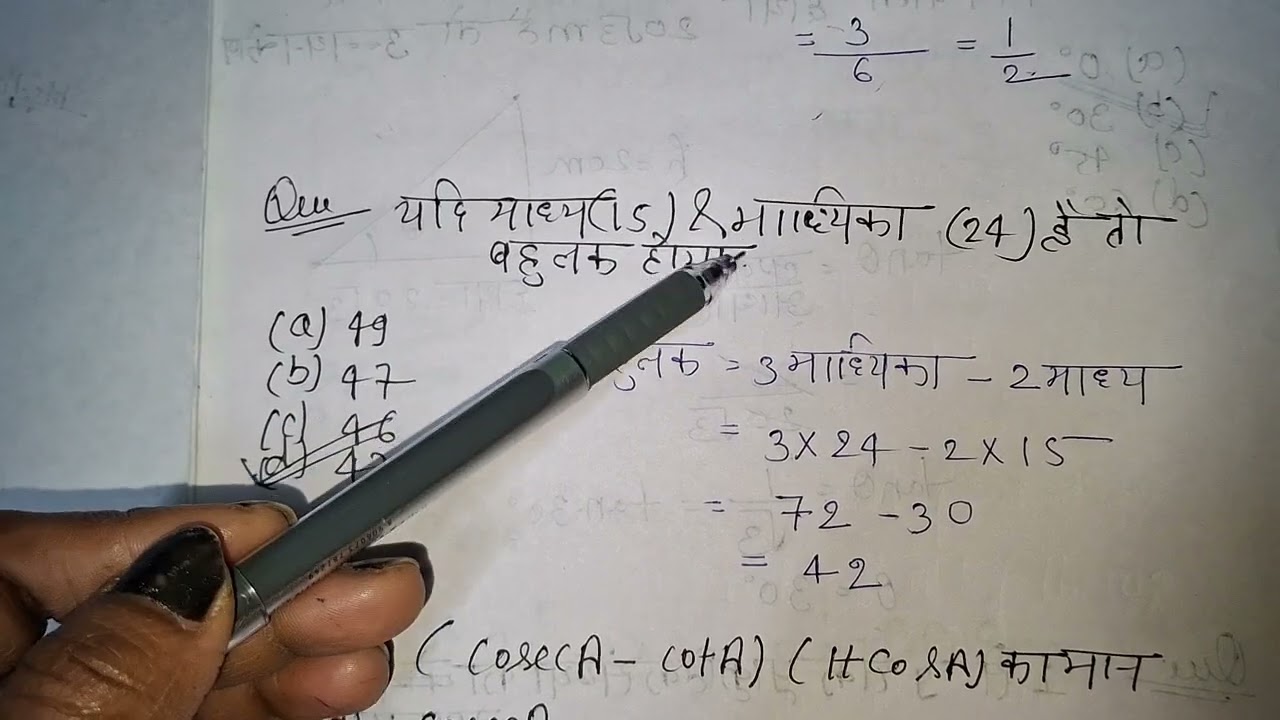 = 3/6 = 1/2
Que यदि माध्य(15) & माध्यिका (24) है तो
बहुलक होगा
(a) 49
(b) 47
(c) 46
(d) 42
बहुलक = 3 माध्यिका - 2 माध्य
= 3×24 - 2×15
= 72 - 30
= 42
(CosecA - cotA) (1+CosA) का मान